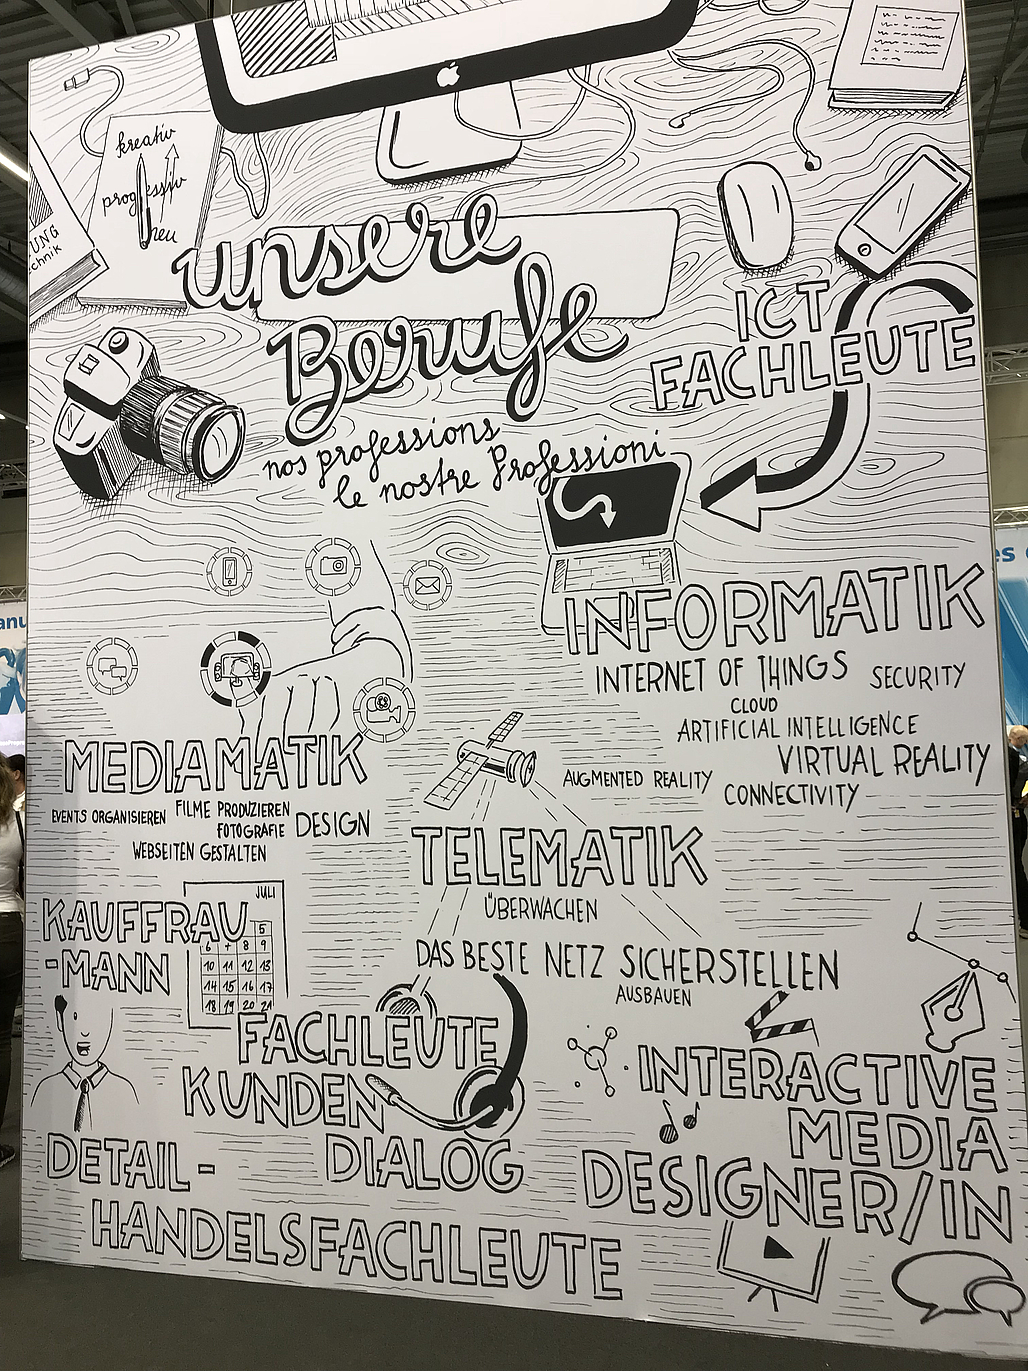 kreativ
progressiv
neu
UNG
chnik
unsere
Berufe
nos professions
le nostre Professioni
ICT
FACHLEUTE
INFORMATIK
INTERNET OF THINGS
SECURITY
CLOUD
ARTIFICIAL INTELLIGENCE
VIRTUAL REALITY
AUGMENTED REALITY
CONNECTIVITY
MEDIAMATIK
EVENTS ORGANISIEREN
FILME PRODUZIEREN
FOTOGRAFIE
DESIGN
WEBSEITEN GESTALTEN
TELEMATIK
ÜBERWACHEN
DAS BESTE NETZ SICHERSTELLEN
AUSBAUEN
KAUFFRAU
-MANN
JULI
5
6 7 8 9
10 11 12 13
14 15 16 17
18 19 20 21
FACHLEUTE
KUNDEN
DIALOG
INTERACTIVE
MEDIA
DESIGNER/IN
DETAIL-
HANDELSFACHLEUTE